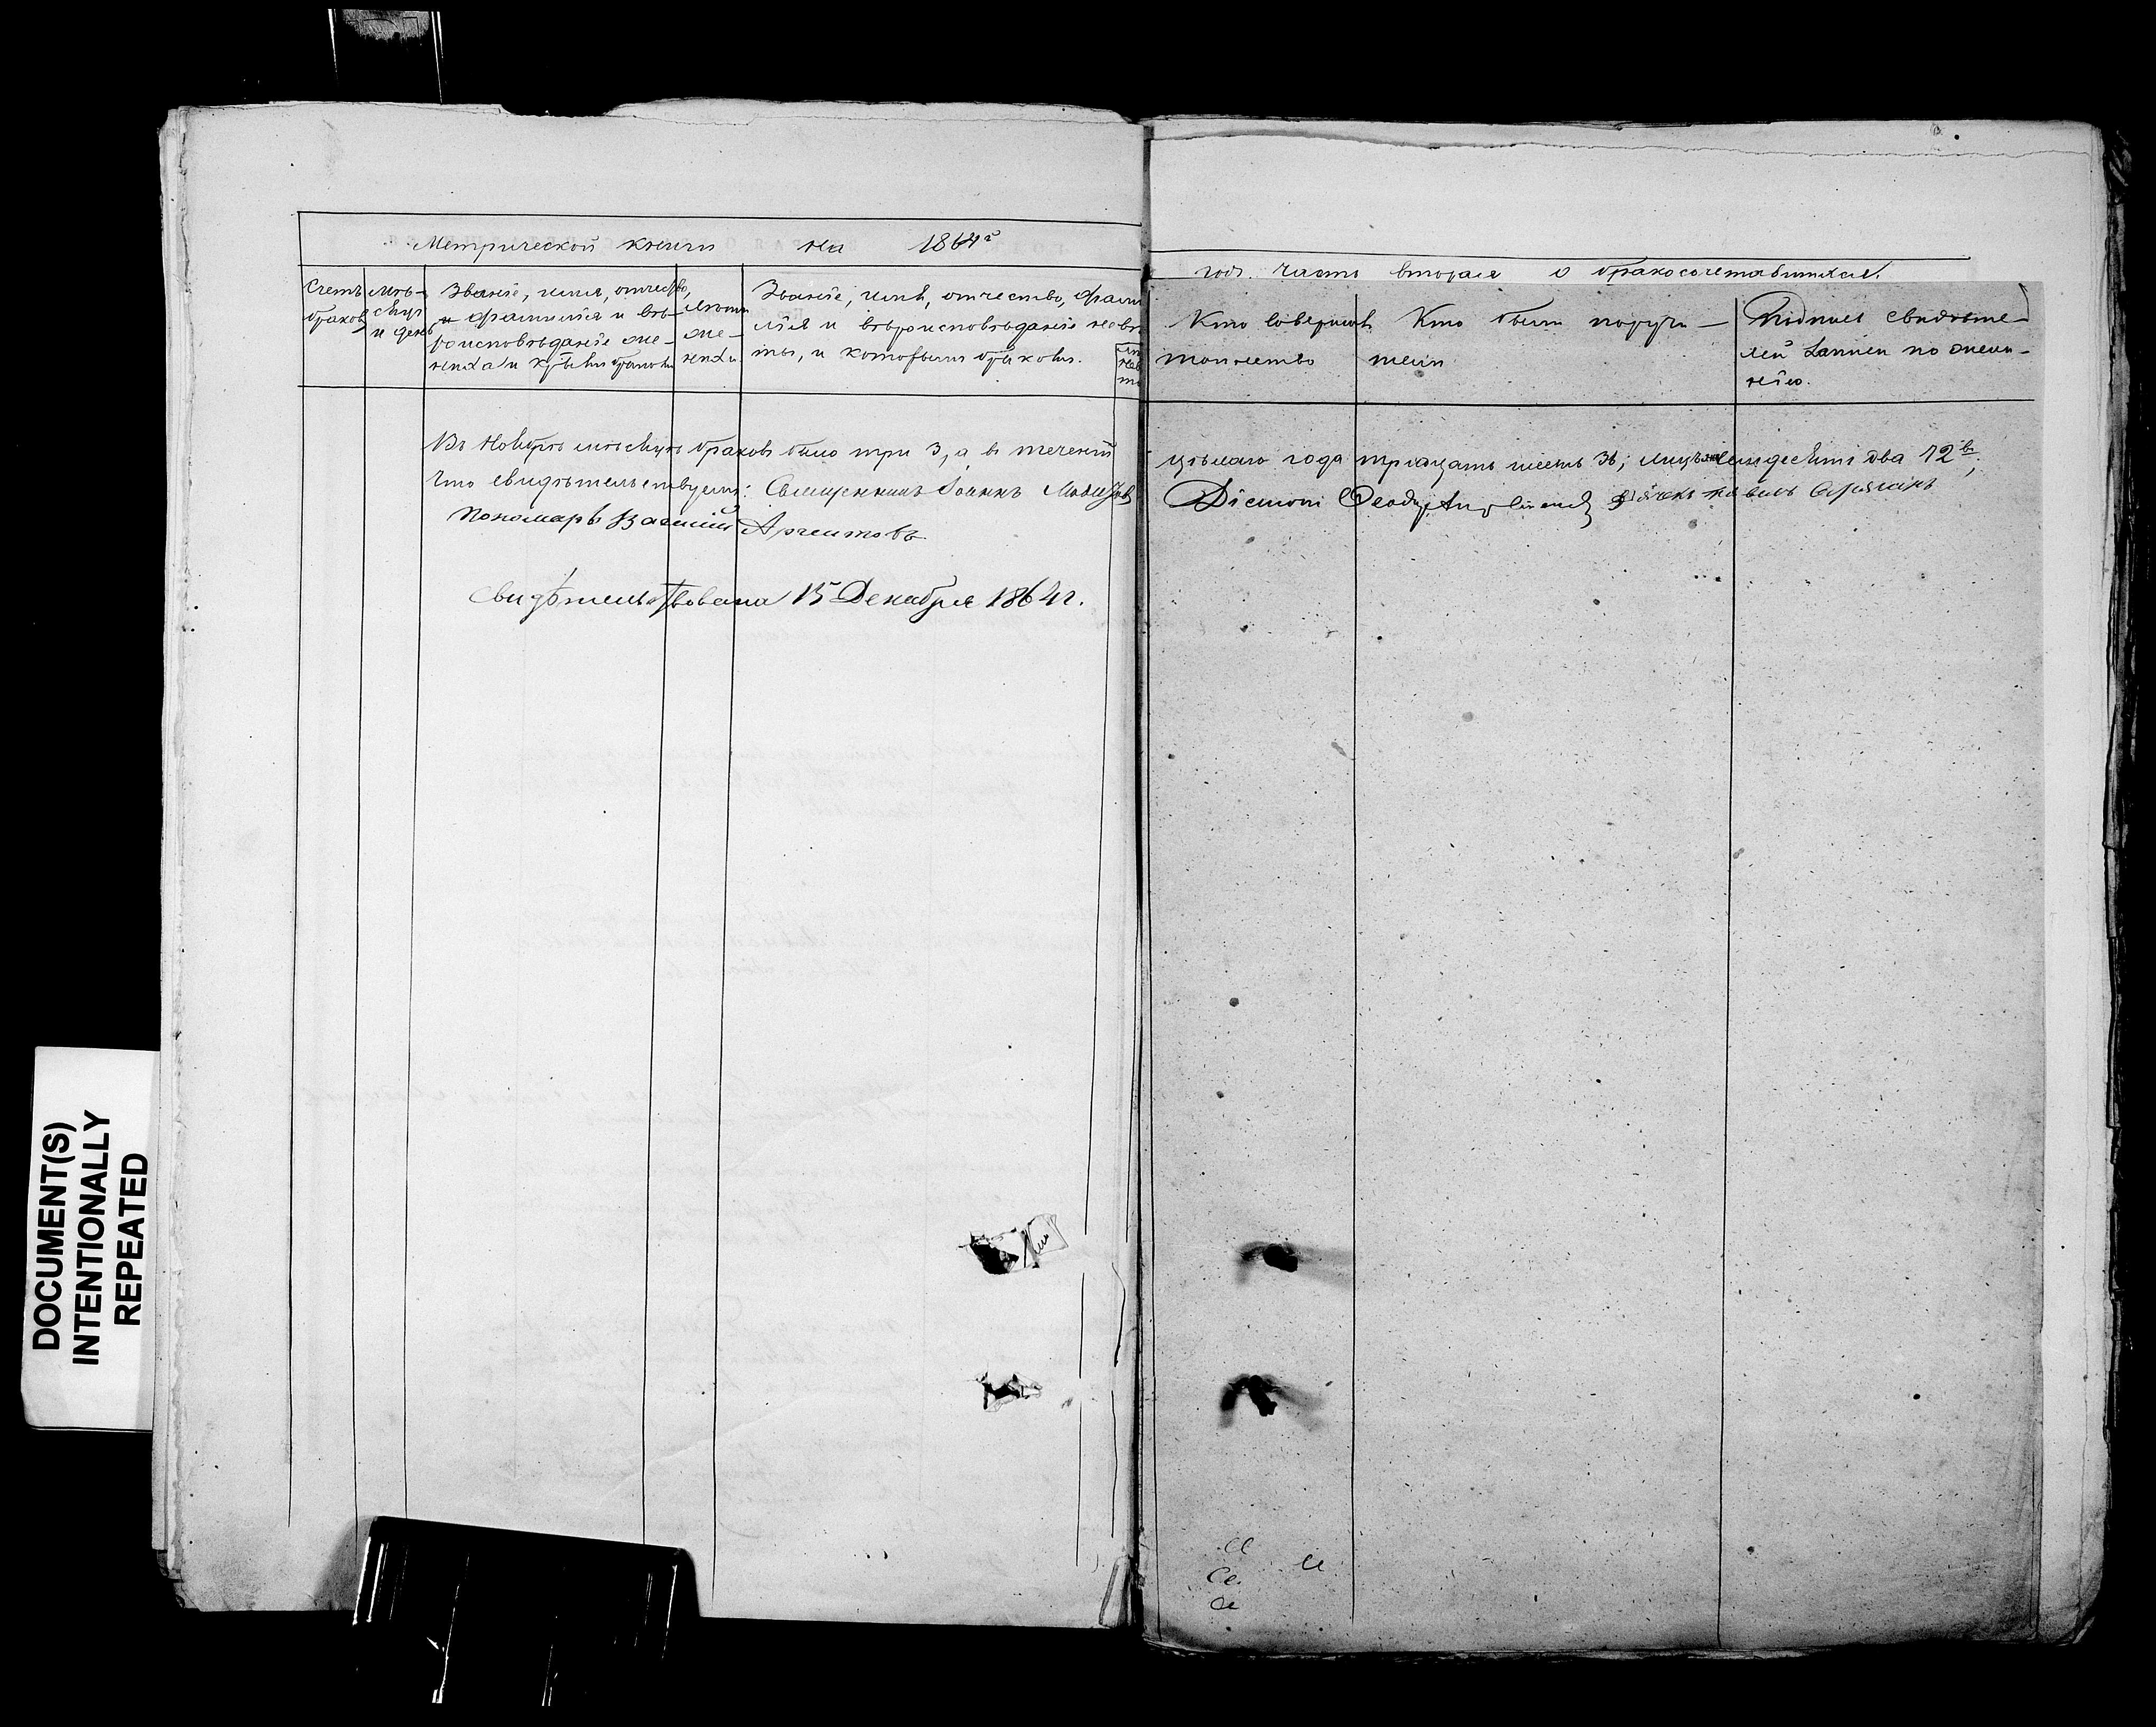 Метрической книги на 1864й
годъ. Часть вторая о бракосочетавшихся.
Счетъ браковъ
Мѣсяцъ и день
Званіе, имя, отчество,
и фамилія и вѣ-
роисповѣданіе же-
ниха и кѣмъ бракомъ
Лѣта
же-
ниха
Званіе, имя, отчество, фами-
лія и вѣроисповѣданіе невѣс-
ты, и которымъ бракомъ.
Кто совершалъ
таинство
Кто были поручи-
тели
Подпись свидѣте-
лей записи по жела-
нію.
Въ Ноябрѣ мѣсяцѣ браковъ было три 3, а въ теченіи
цѣлаго года тридцать шесть 36; лицъ семьдесятъ два 72въ,
Что свидѣтельствуемъ: Священникъ Іоаннъ
Дьячекъ Павелъ
Пономарь Василій
Свидѣтельствована 15 Декабря 1864 г.
DOCUMENT(S)
INTENTIONALLY
REPEATED